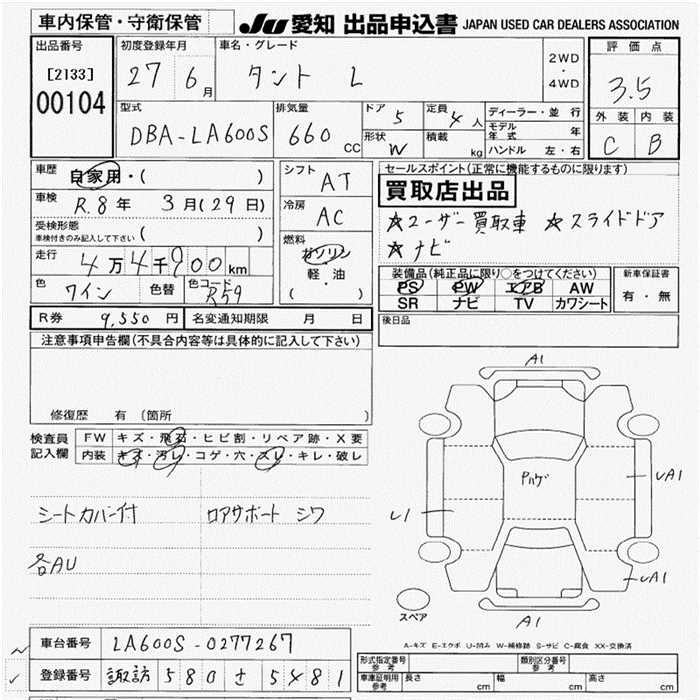 車内保管・守衛保管
JU 愛知 出品申込書 JAPAN USED CAR DEALERS ASSOCIATION
出品番号
[2133]
00104
初度登録年月
27 6月
車名・グレード
タント L
2WD・4WD
評価点
3.5
外装 内装
C B
型式
DBA-LA600S
排気量
660 CC
ドア 5
定員 4人
形状 W
積載 kg
ディーラー・並行
モデル年式 年
ハンドル 左・右
車歴 自家用・( )
車検 R.8年 3月(29日)
受検形態
車検付きのみ記入して下さい ( )
走行 4万4千900km
色 ワイン 色替 色コード R59
シフト AT
冷房 AC
燃料 ガソリン
軽・油
( )
セールスポイント(正常に機能するものに限ります)
買取店出品
☆ユーザー買取車 ☆スライドドア
☆ナビ
装備品(純正品に限り○をつけてください)
PS PW エアB AW
SR ナビ TV カワシート
新車保証書
有・無
R券 9,550円 名変通知期限 月 日
後日品
注意事項申告欄(不具合内容等は具体的に記入して下さい)
修復歴 有(箇所 )
検査員記入欄
FW キズ・飛石・ヒビ割・リペア跡・X要
内装 キズ・汚レ・コゲ・穴・スレ・キレ・破レ
シートカバー付 ロアサポート シワ
各AU
A1
Pハゲ
UA1
U1
UA1
A1
スペア
A-キズ E-エクボ U-凹み W-補修跡 S-サビ C-腐食 XX-交換済
車台番号 LA600S-0277267
登録番号 諏訪 580 さ 5481
形式指定番号 参考 類別区分番号 参考
車庫証明用 参考 長さ cm 幅 cm 高さ cm